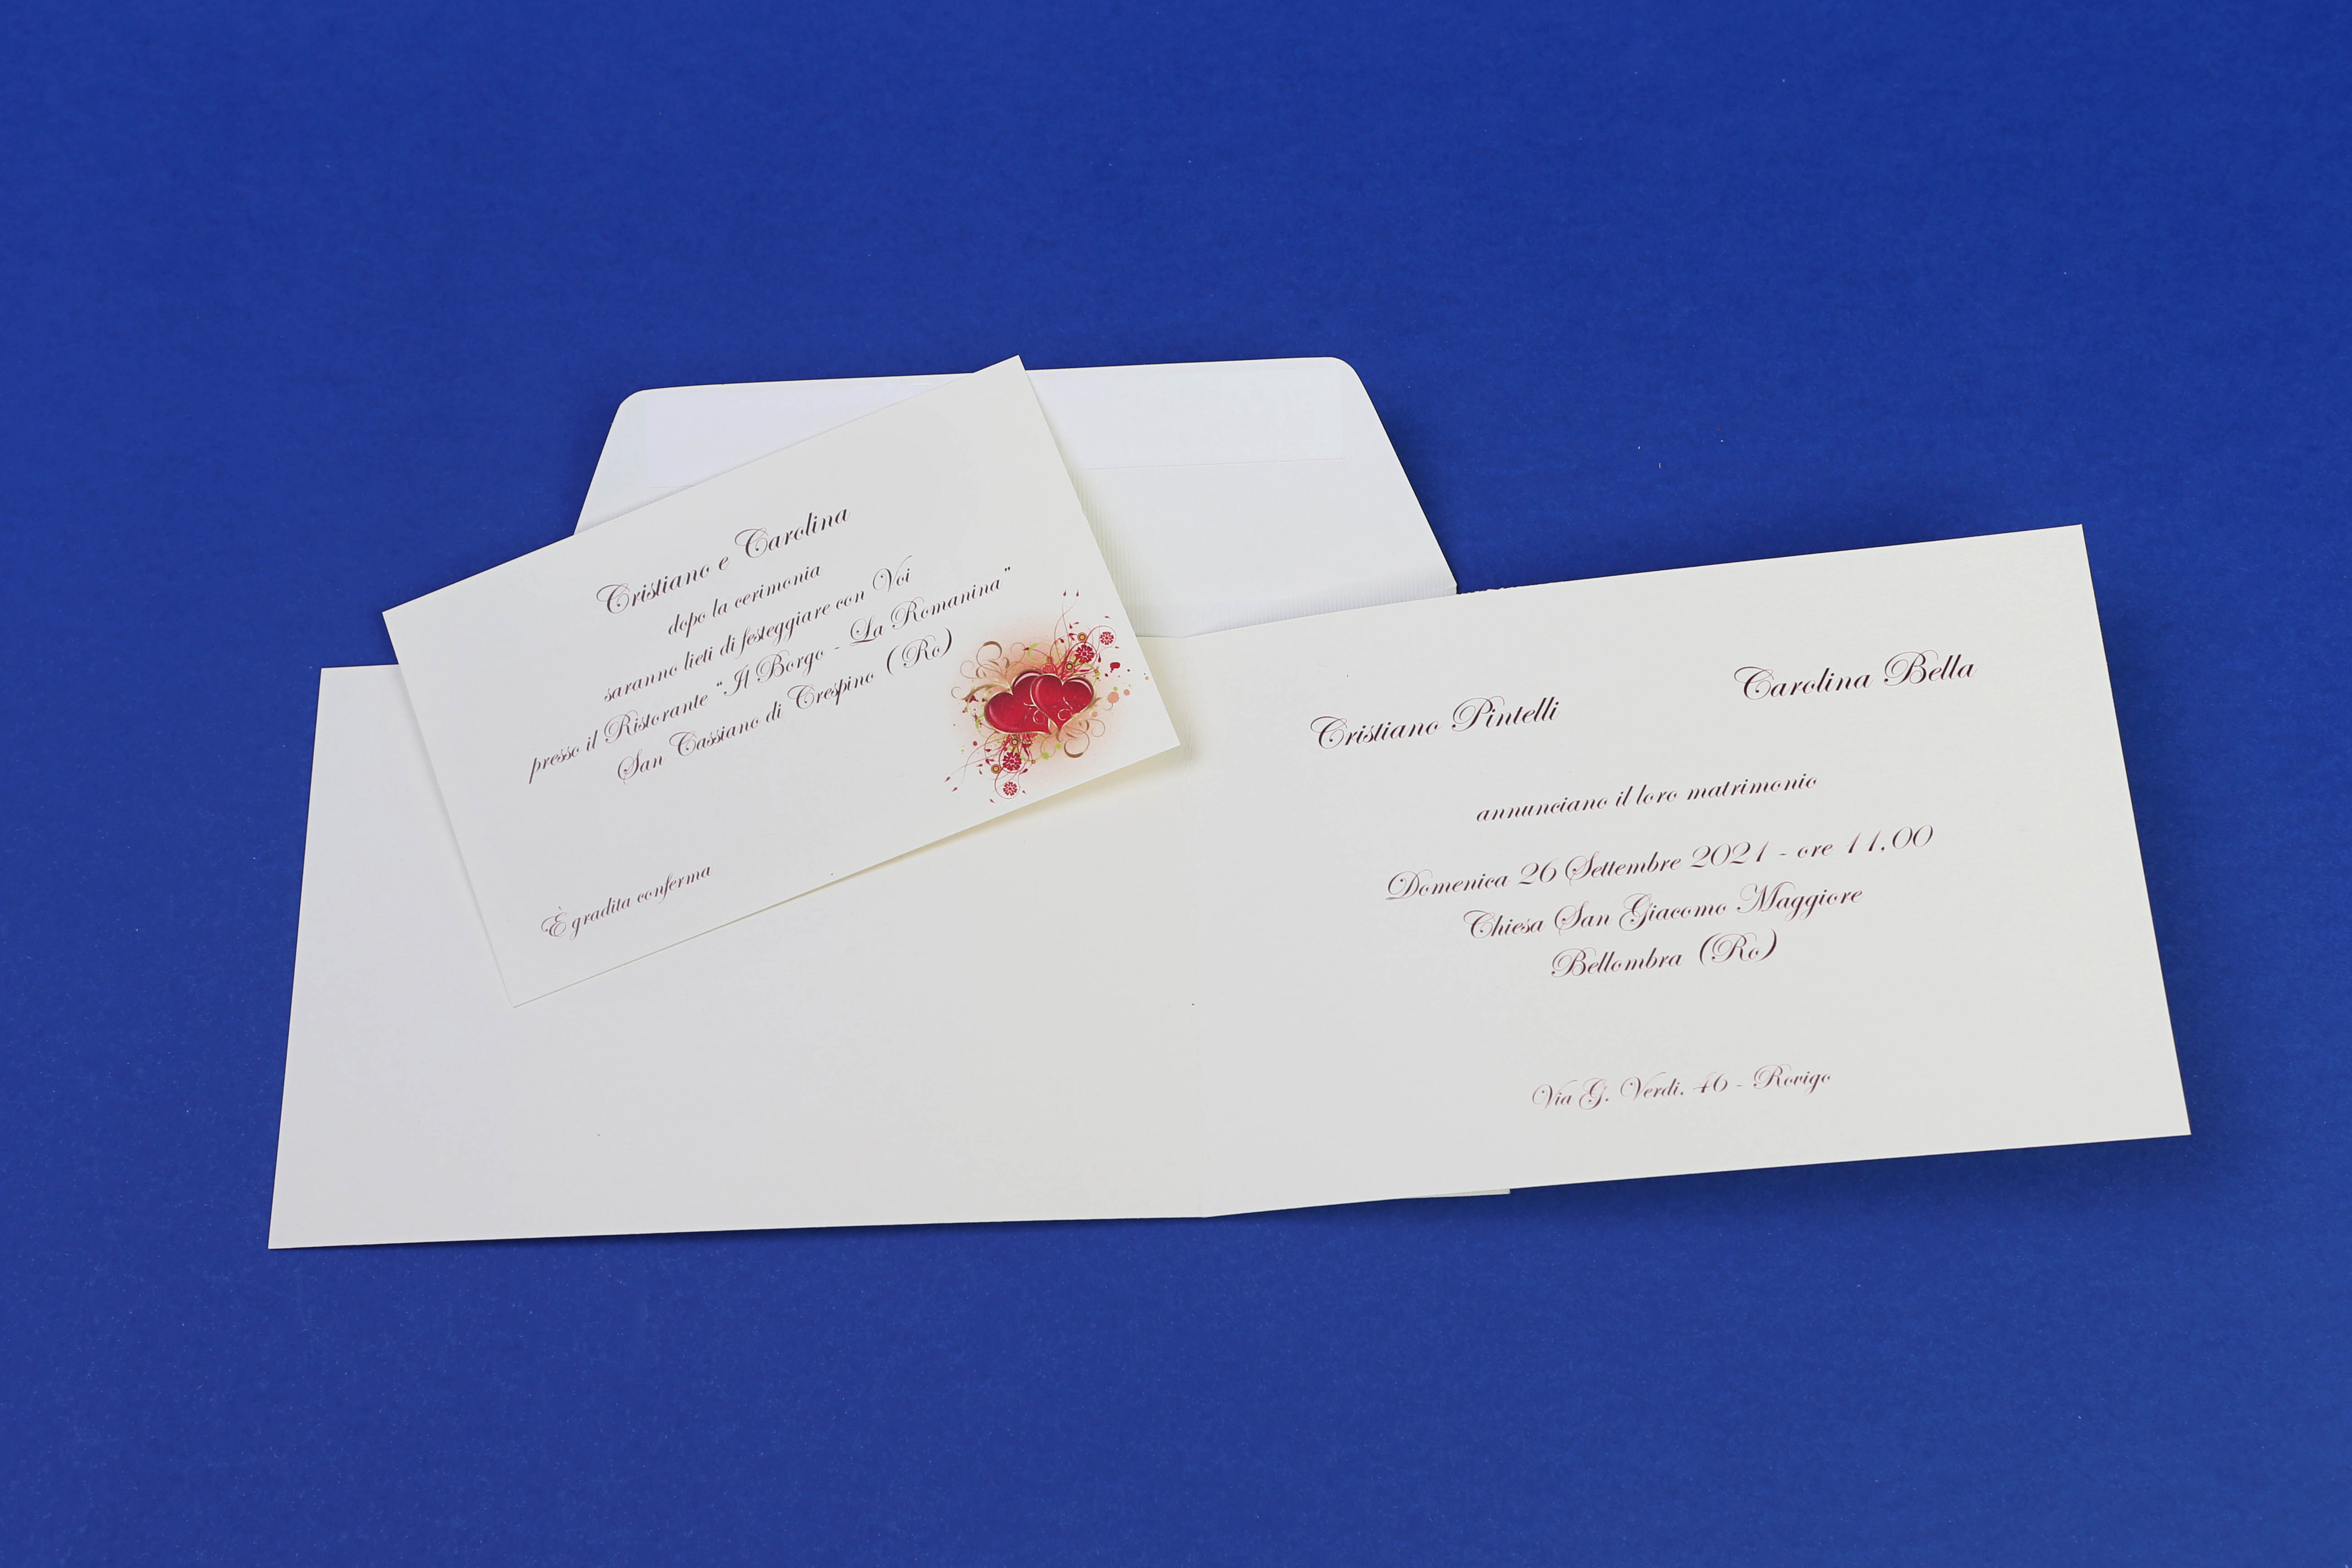 Cristiano e Carolina
dopo la cerimonia
saranno lieti di festeggiare con Voi
presso il Ristorante "Il Borgo - La Romanina"
San Cassiano di Crespino (Ro)
È gradita conferma
Cristiano Pintelli
Carolina Bella
annunciano il loro matrimonio
Domenica 26 Settembre 2021 - ore 11.00
Chiesa San Giacomo Maggiore
Bellombra (Ro)
Via G. Verdi, 46 - Rovigo